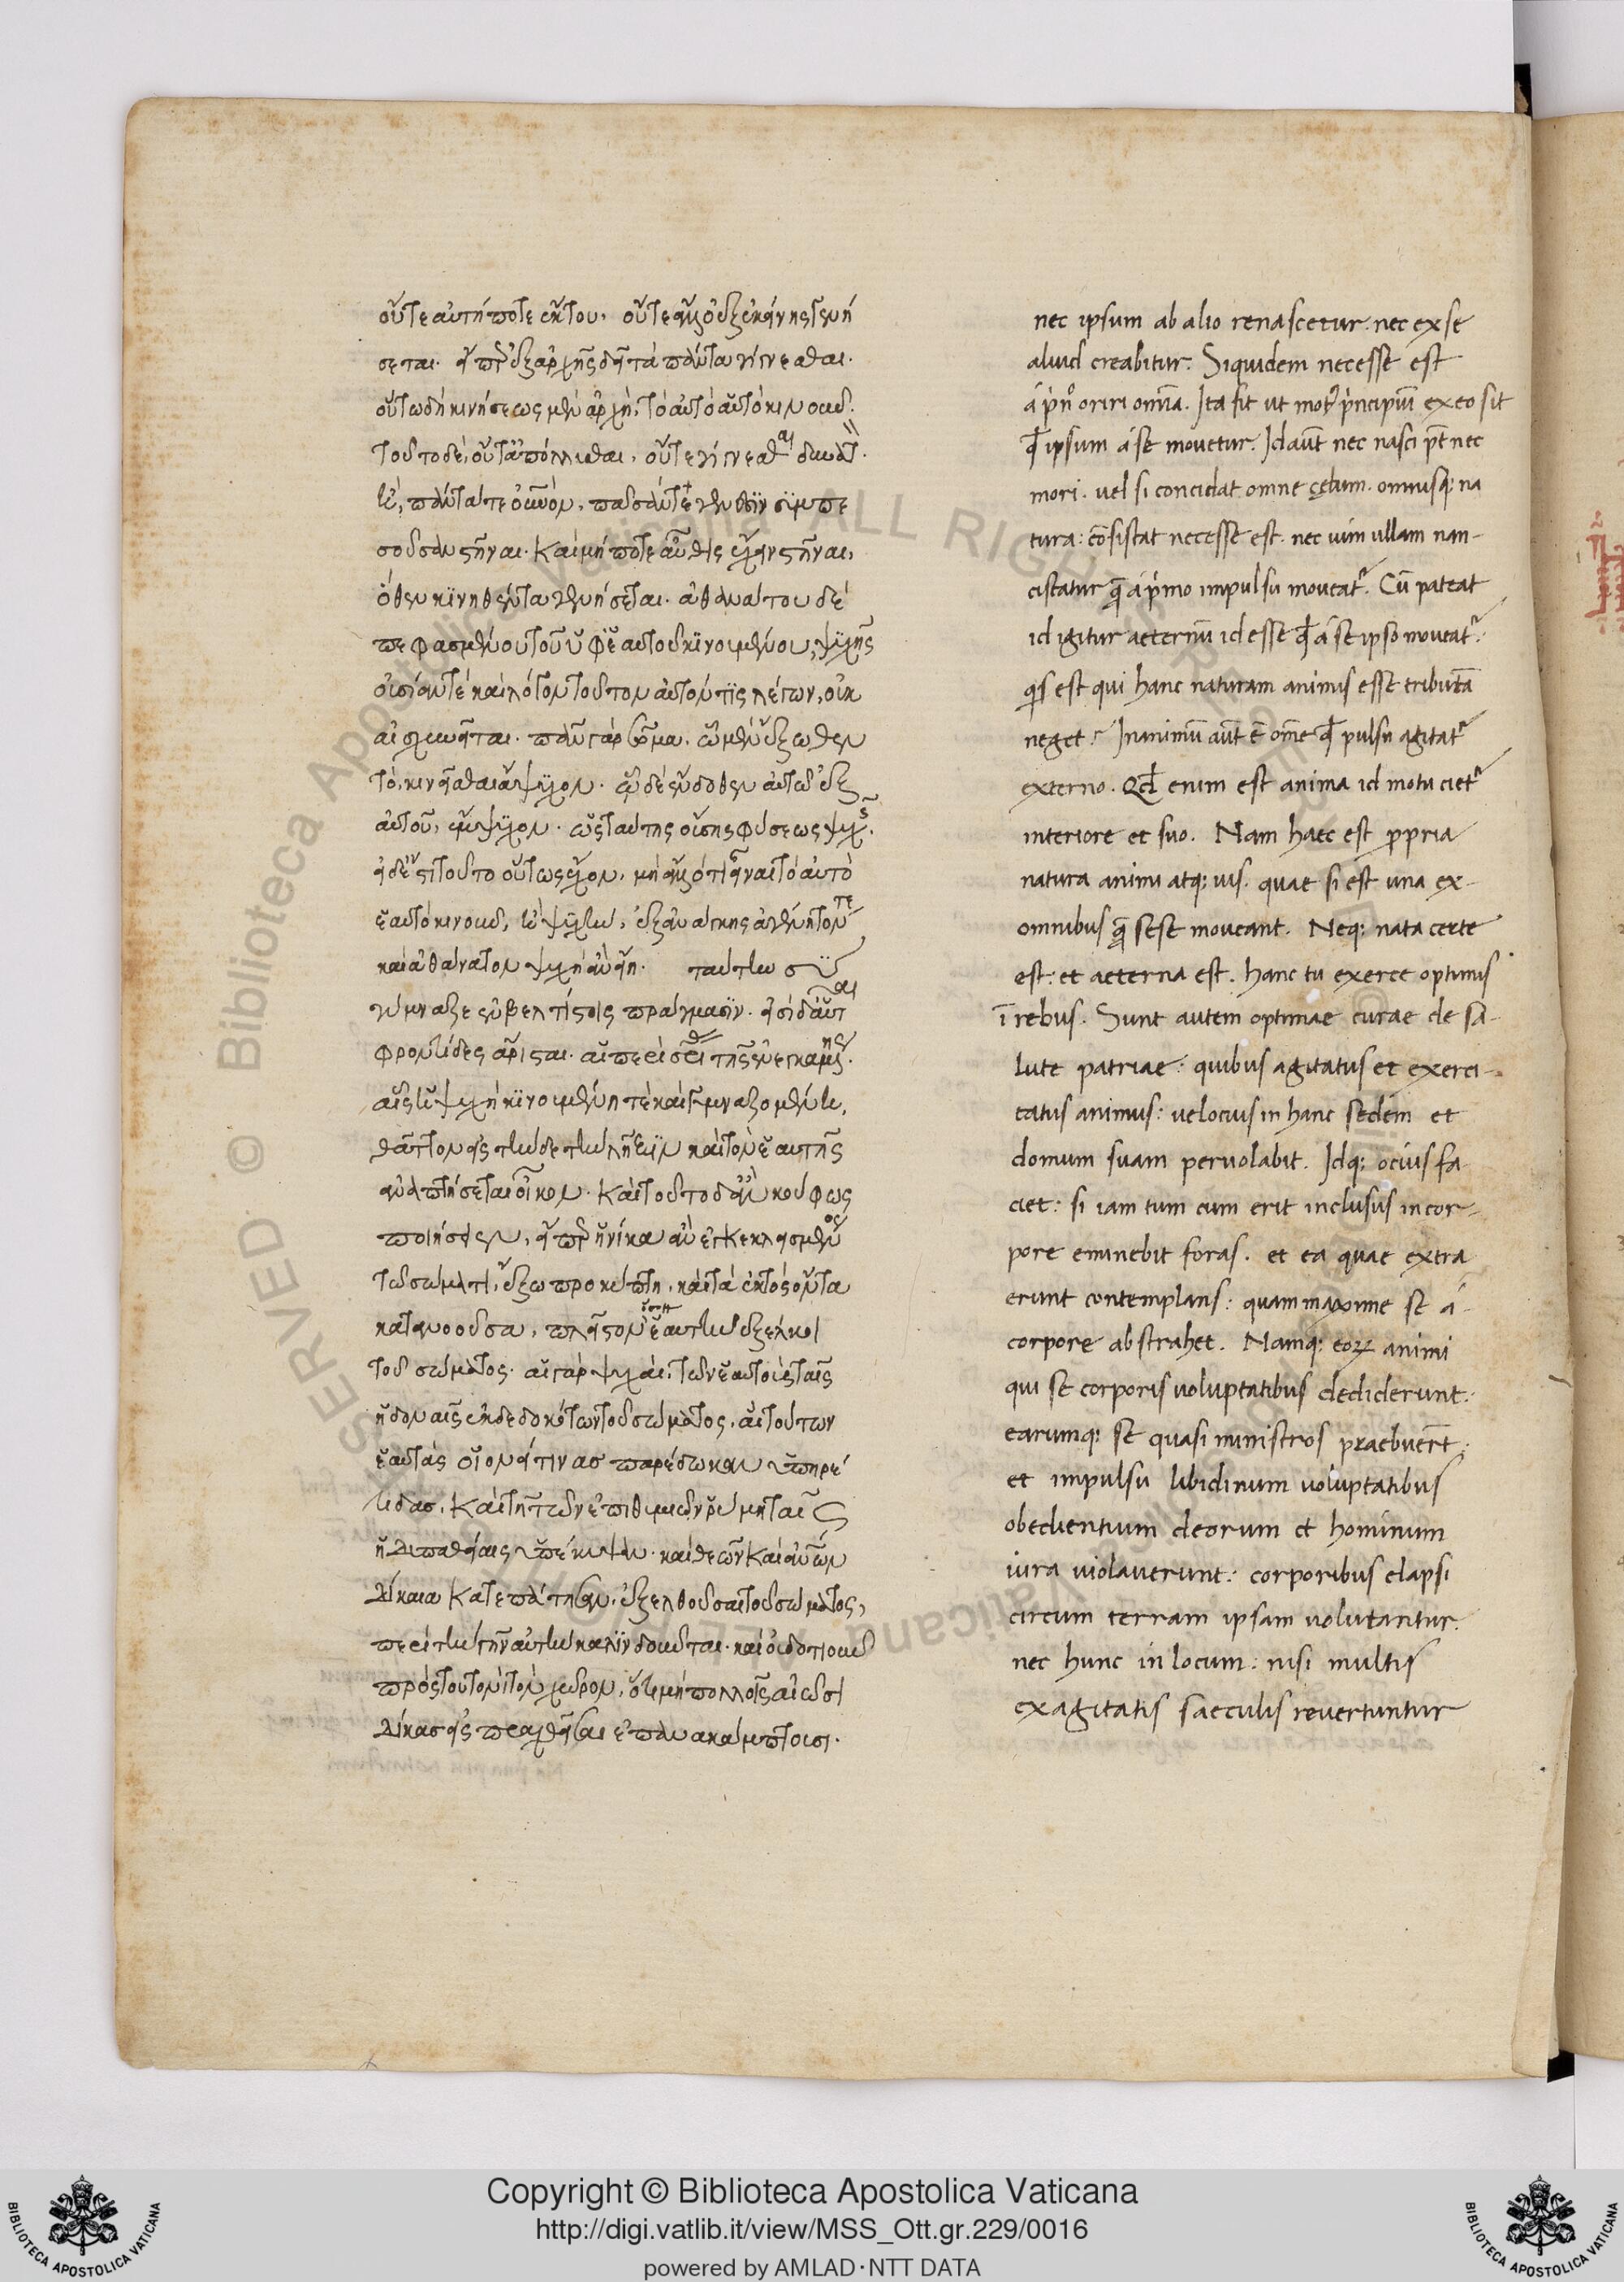 οὔτε αὐτή ποτε ἔκ του, οὔτε ἄλλο ἐξ ἐκείνης γενή
σεται. εἴπερ ἐξ ἀρχῆς δεῖ τὰ πάντα γίνεσθαι.
οὕτω δὴ κινήσεως μὲν ἀρχὴ, τὸ αὐτὸ αὑτὸ κινοῦν.
τοῦτο δὲ, οὔτ' ἀπόλλυσθαι, οὔτε γίνεσθαι δυνατ.
ἢ, πάντα τε οὐνὸν, πᾶσάν τε γένεσιν συμπε
σοῦσαν στῆναι. καὶ μή ποτε αὖθις ἔχειν στῆναι,
ὅθεν κινηθέντα γενήσεται. ἀθανάτου δὲ
πεφασμένου τοῦ ὑφ' ἑαυτοῦ κινουμένου, ψυχῆς
οὐσίαν τὲ καὶ λόγον τοῦτον αὐτόν τις λέγων, οὐκ
αἰσχυνεῖται. πᾶν γὰρ σῶμα, ᾧ μὲν ἔξωθεν
τὸ κινεῖσθαι ἄψυχον. ᾧ δὲ ἔνδοθεν αὐτῷ ἐξ
αὑτοῦ, ἔμψυχον. ὡς ταύτης οὔσης φύσεως ψυχῆς.
εἰ δ' ἔστι τοῦτο οὕτως ἔχον, μὴ ἄλλό τι εἶναι τὸ αὐτὸ
ἑαυτὸ κινοῦν, ἢ ψυχὴν, ἐξ ἀνάγκης ἀγένητόν τε
καὶ ἀθάνατον ψυχὴ ἂν εἴη. ταύτην σὺ
γύμναζε ἐν βελτίστοις πράγμασιν. εἰσὶ δ' αὗται
φροντίδες ἄρισται. αἱ περὶ τῆς ἐνεγκαμένης.
αἷς ἡ ψυχὴ κινουμένη τὲ καὶ γυμναζομένη,
θᾶττον εἰς τήνδε τὴν λῆξιν καὶ τὸν ἑαυτῆς
ἀναπτήσεται οἶκον. καὶ τοῦτο δ' ἂν κούφως
ποιήσειεν, εἴπερ ἡνίκα ἂν ἐγκεκλεισμένος
τῷ σώματι, ἔξω προκύπτῃ, καὶ τὰ ἐκτὸς ὄντα
κατανοοῦσα, πλεῖστον ὅσον ἑαυτὴν ἐξέλκοι
τοῦ σώματος. αἱ γὰρ ψυχαὶ, τῶν ἑαυτοὺς ταῖς
ἡδοναῖς ἐκδεδοκότων τοῦ σώματος, αἳ τούτων
ἑαυτὰς οἷον εἴ τινας παρέδωκαν ὑπηρέ
τιδας, καὶ τῇ τῶν ἐπιθυμιῶν ῥύμῃ ταῖς
ἡδυπαθείαις ὑπέκυψαν. καὶ θεῶν καὶ ἀνων
δίκαια κατεπάτησαν, ἐξελθοῦσαι τοῦ σώματος,
περὶ τὴν γῆν αὐτὴν καλινδοῦνται. καὶ οὐδ' ὁτιοῦν
πρὸς τουτονὶ τὸν χῶρον, ὅτι μὴ πολλοῖς αἰῶσι
δίκας εἰσπραχθεῖσαι ἐπανακάμπτουσι.
nec ipsum ab alio renascetur. nec ex se
aliud creabitur. Siquidem necesse est
á p̍nº oriri omīa. Ita fit ut motꝰ p̍ncipiuī ex eo sit
qđ ipsum á se mouetur. Id aūt nec nasci pt̄ nec
mori. uel si concidat omne cęlum. omnisq; na
tura: cōsistat necesse est. nec uim ullam nan-
ciscatur qā á p̍mo impulsu moueatr̄. Cū pateat
id igitur aeternū id esse qđ á se ipso moueatr̄.
qs est qui hanc naturam animis esse tributā
neget? Inanimū aūt ē om̄e qđ pulsu agitatr̄
externo. Qđ enim est anima id motu cietr̄
interiore et suo. Nam haec est ꝓpria
natura animi atq; uis. quae si est una ex-
omnibus qā sese moueant. Neq; nata certe
est: et aeterna est. hanc tu exerce optimis
ī rebus. Sunt autem optimae curae de sa-
lute patriae: quibus agitatus et exerci-
tatus animus: uelocius in hanc sedem et
domum suam peruolabit. Idq; ocius fa-
ciet: si iam tum cum erit inclusus in cor-
pore eminebit foras. et ea quae extra
erunt contemplans: quam maxime se á-
corpore abstrahet. Namq; eoꝝ animi
qui se corporis uoluptatibus dediderunt:
earumq; se quasi ministros praebuert̄:
et impulsu libidinum uoluptatibus
obedientium deorum et hominum
iura uiolauerunt: corporibus elapsi
circum terram ipsam uolutantur.
nec hunc in locum: nisi multis
exagitatis saeculis reuertuntur
Copyright © Biblioteca Apostolica Vaticana
http://digi.vatlib.it/view/MSS_Ott.gr.229/0016
powered by AMLAD·NTT DATA